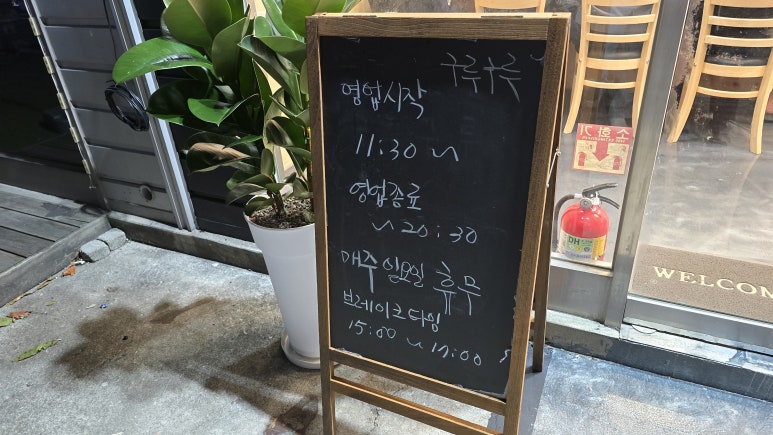 구루구루
영업시작
11:30 ~
영업종료
~20:30
매주 일요일 휴무
브레이크타임
15:00 ~ 17:00
소화기
WELCOM